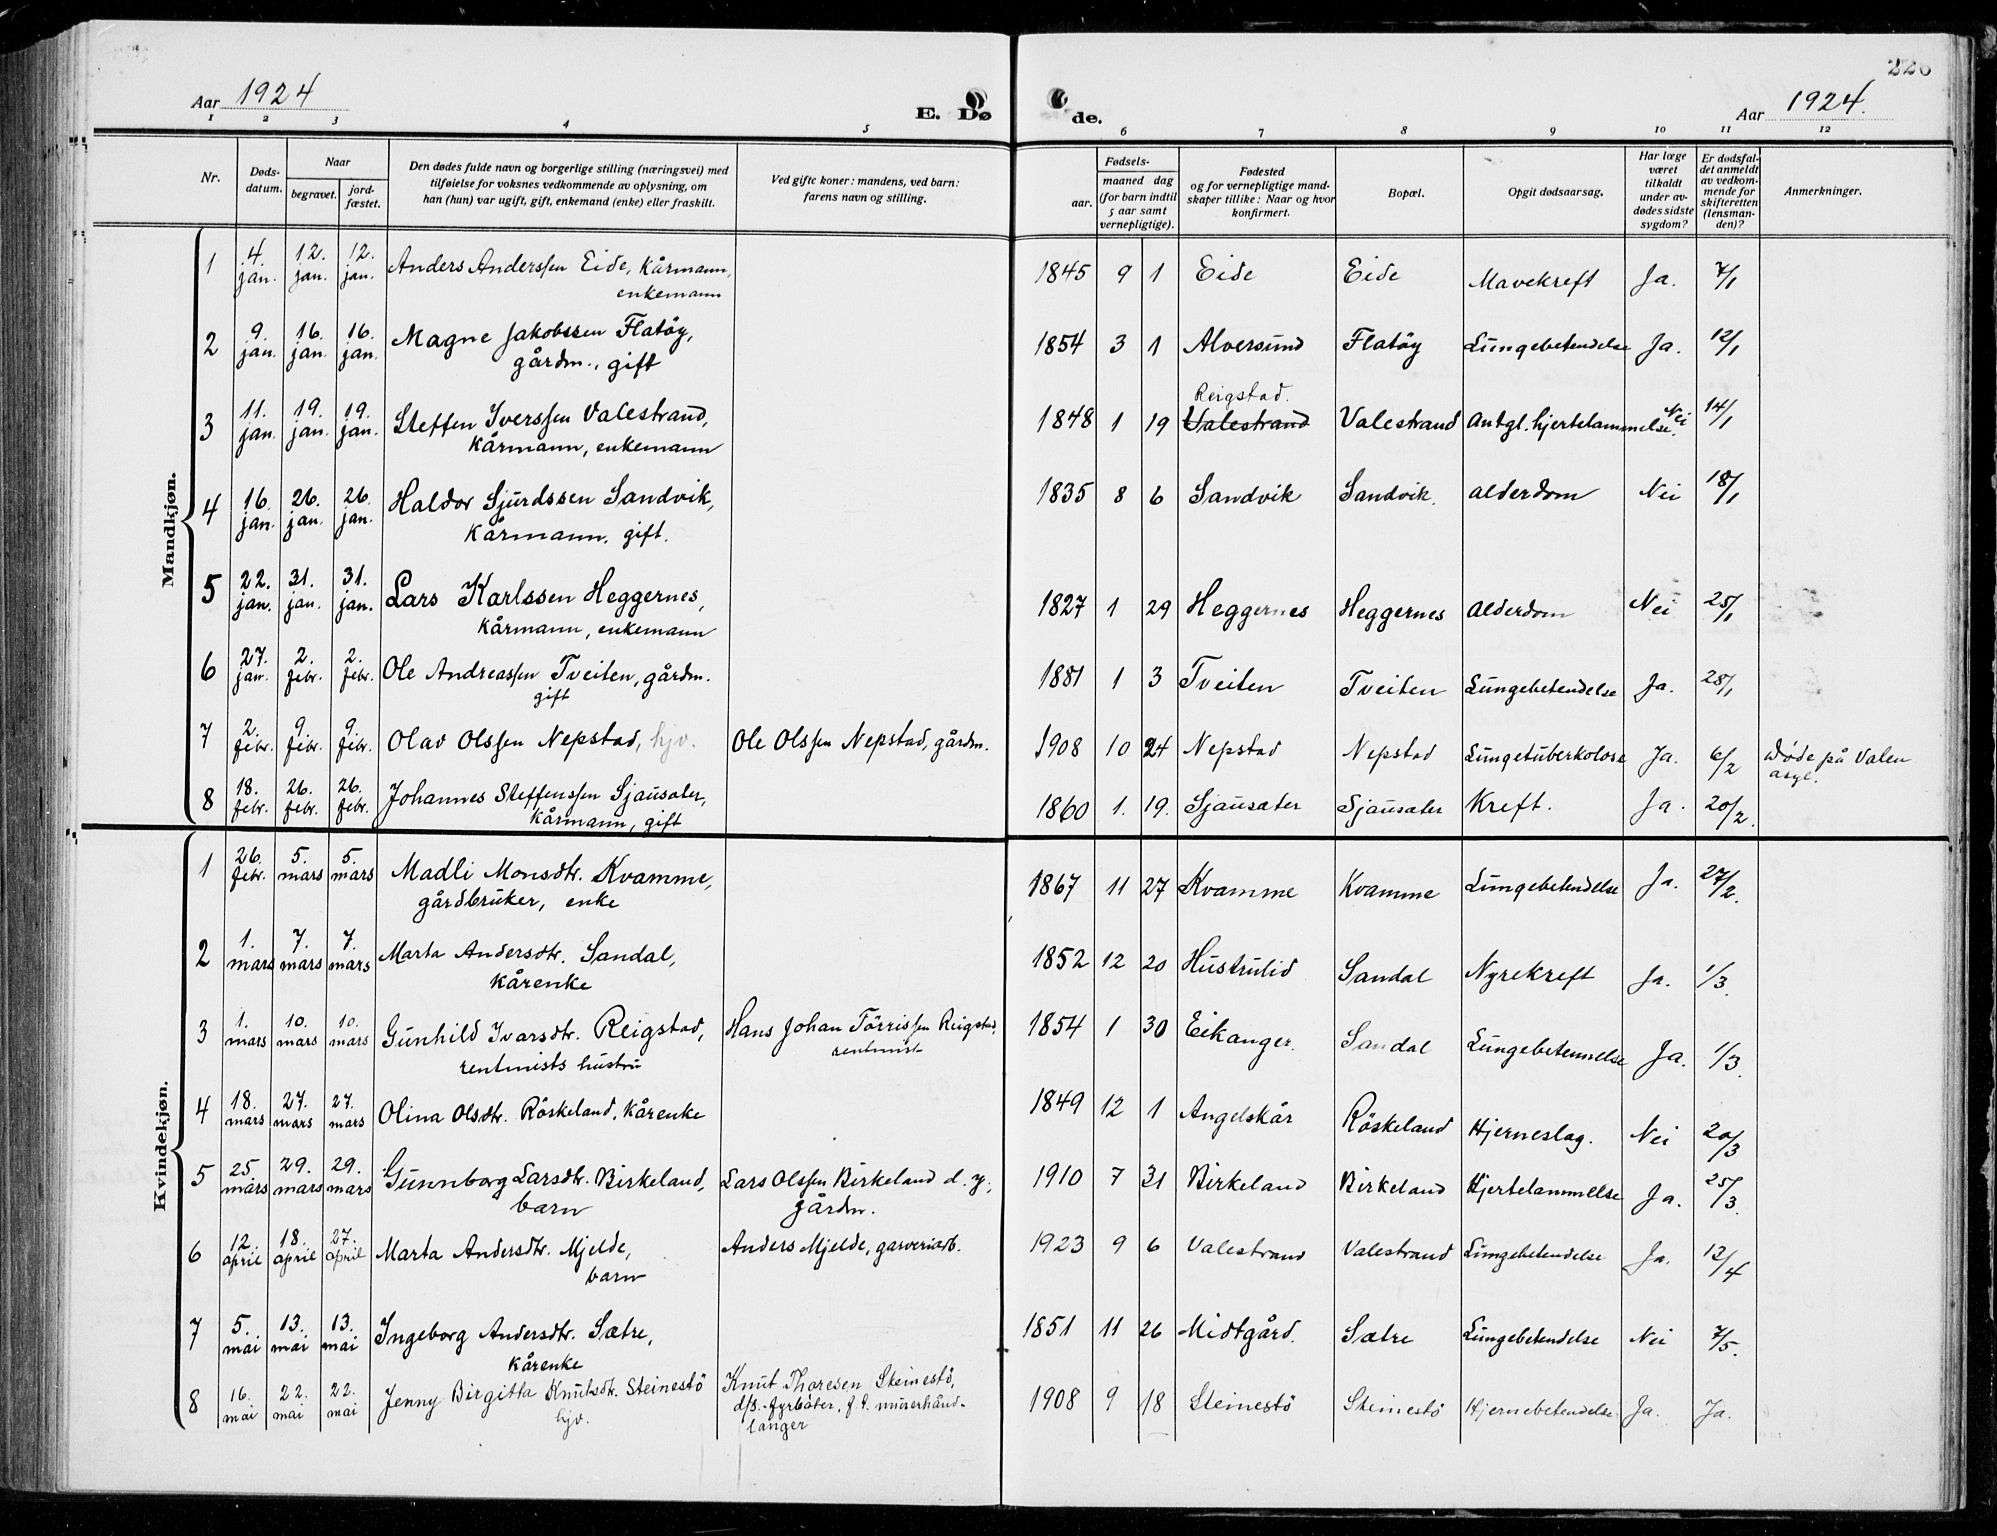 226
Aar 1924
E. Dø de.
Aar 1924.
1 2 3 4 5 6 7 8 9 10 11 12
Nr.
Døds-
datum.
Naar
begravet.
jord-
fæstet.
Den dødes fulde navn og borgerlige stilling (næringsvei) med
tilføielse for voksnes vedkommende av oplysning, om
han (hun) var ugift, gift, enkemand (enke) eller fraskilt.
Ved gifte koner: mandens, ved barn:
farens navn og stilling.
Fødsels-
aar.
maaned dag
(for barn indtil
5 aar samt
vernepligtige).
Fødested
og for vernepligtige mand-
skaper tillike: Naar og hvor
konfirmert.
Bopæl.
Opgit dødsaarsag.
Har læge
været
tilkaldt
under av-
dødes sidste
sygdom?
Er dødsfal-
det anmeldt
av vedkom-
mende for
skifteretten
(lensman-
den)?
Anmerkninger.
Mandkjøn.
1 4. jan. 12. jan. 12. jan. Anders Anderssen Eide, kårmann, 1845 9 1 Eide Eide Mavekreft Ja. 7/1
enkemann
2 9. jan. 16. jan. 16. jan. Magne Jakobssen Flatöy, 1854 3 1 Alversund Flatöy Lungebetendelse Ja. 12/1
gårdm., gift
Reigstad.
3 11. jan. 19. jan. 19. jan. Steffen Iverssen Valestrand, 1848 1 19 Valestrand Valestrand Antgl. hjertelammelse. Nei 14/1
kårmann, enkemann
4 16. jan. 26. jan. 26. jan. Haldor Sjurdssen Sandvik, 1835 8 6 Sandvik Sandvik. alderdom Nei 18/1
kårmann. gift.
5 22. jan. 31. jan. 31. jan. Lars Karlssen Heggernes, 1827 1 29 Heggernes Heggernes Alderdom Nei 25/1
kårmann, enkemann
6 27. jan. 2. febr. 2. febr. Ole Andreassen Tveiten, gårdm. 1881 1 3 Tveiten Tveiten Lungebetendelse Ja. 28/1
gift
7 2. febr. 9. febr. 9. febr. Olav Olssen Nepstad, hjv. Ole Olssen Nepstad, gårdm. 1908 10 24 Nepstad Nepstad Lungetuberkolose Ja. 6/2 Døde på Valen
asyl.
8 18. febr. 26. febr. 26. febr. Johannes Steffenssen Sjausæter, 1860 1. 19. Sjausæter Sjausæter Kreft. Ja. 20/2.
kårmann, gift
Kvindekjøn.
1 26. febr. 5. mars 5. mars Madli Monsdtr. Kvamme, 1867 11 27 Kvamme Kvamme Lungebetendelse Ja. 27/2.
gårdbruker, enke
2 1. mars 7. mars 7. mars Marta Andersdtr. Sandal, 1852 12 20 Hustrulid Sandal Nyrekreft Ja. 1/3.
kårenke
3 1. mars 10. mars 10. mars Gunhild Ivarsdtr. Reigstad, Hans Johan Törrissen Reigstad, 1854 1 30 Eikanger. Sandal Lungebetennelse Ja. 1/3.
rentenists hustru rentenist
4 18. mars 27. mars 27. mars Olina Olsdtr. Röskeland, kårenke 1849 12 1 Angelskår Röskeland Hjerneslag. Nei 20/3
5 25. mars 29. mars 29. mars Gunnborg Larsdtr. Birkeland, Lars Olssen Birkeland d. y., 1910 7 31 Birkeland Birkeland Hjertelammelse Ja. 25/3.
barn gårdm.
6 12. april 18. april 27. april Marta Andersdtr. Mjelde, Anders Mjelde, garveriarb. 1923 9 6 Valestrand Valestrand Lungebetendelse Ja. 12/4
barn
7 5. mai 13. mai 13. mai Ingeborg Andersdtr. Sætre, 1851 11 26 Midtgård. Sætre Lungebetendelse Nei 7/5.
kårenke
8 16. mai 22. mai 22. mai Jenny Birgitta Knutsdtr. Steinestö Knut Thoresen Steinestö, 1908 9 18 Steinestö Steinestö Hjernebetendelse. Ja. Ja.
hjv. d/s. fyrböter, f. t. murerhånd-
langer